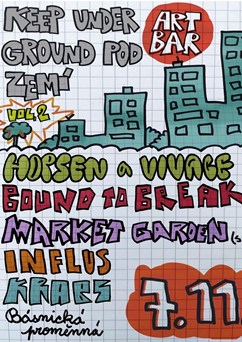 KEEP UNDER
GROUND POD
ZEMÍ
ART
BAR
VOL.2
HOPSEN a VIVALE
BOUND TO BREAK
MARKET GARDEN (S
INFLUS
KRABS
Básnická
proměnná
7.11.